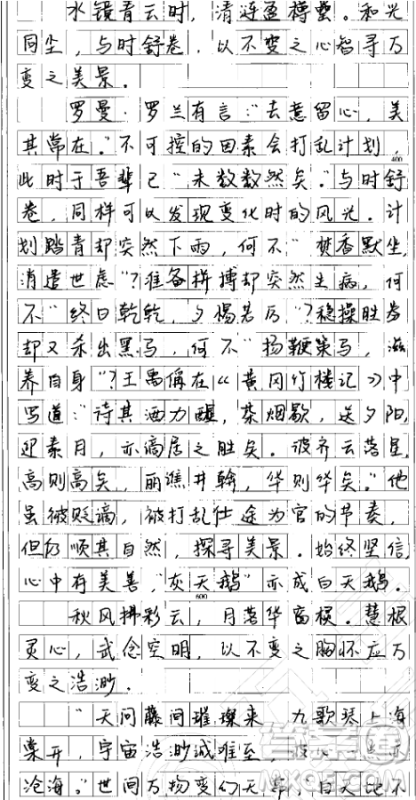 水镜青云时，清涟盈樽罍。和光
同尘，与时舒卷，以不变之心智寻万
变之美景。
罗曼·罗兰有言："去惹留心，美
其常在。"不可控的因素会打乱计划，
400
此时于吾辈已"未数数然矣。"与时舒
卷，同样可以发现变化时的风光。计
划踏青却突然下雨，何不"焚香默坐，
消遣世虑"？准备拼搏却突然生病，何
不"终日乾乾，夕惕若厉"？稳操胜券
却又杀出黑马，何不"扬鞭策马，滋
养自身"？王禹偁在《黄冈竹楼记》中
写道："待其酒力醒，茶烟歇，送夕阳，
迎素月，亦谪居之胜矣。彼齐云落星，
高则高矣，丽谯井榦，华则华矣。"他
虽被贬谪，被打乱仕途为官的节奏，
但仍顺其自然，探寻美景。始终坚信
心中有美善，"灰天鹅"亦成白天鹅。
600
秋风拼彩云，月落华窗棂。慧根
灵心，武念空明，以不变之胸怀应万
变之浩渺。
"天问藤间璀璨来，九歌琴上海
棠开，宇宙浩渺诚难至，
沧海。"世间万物变幻无常，白天地不